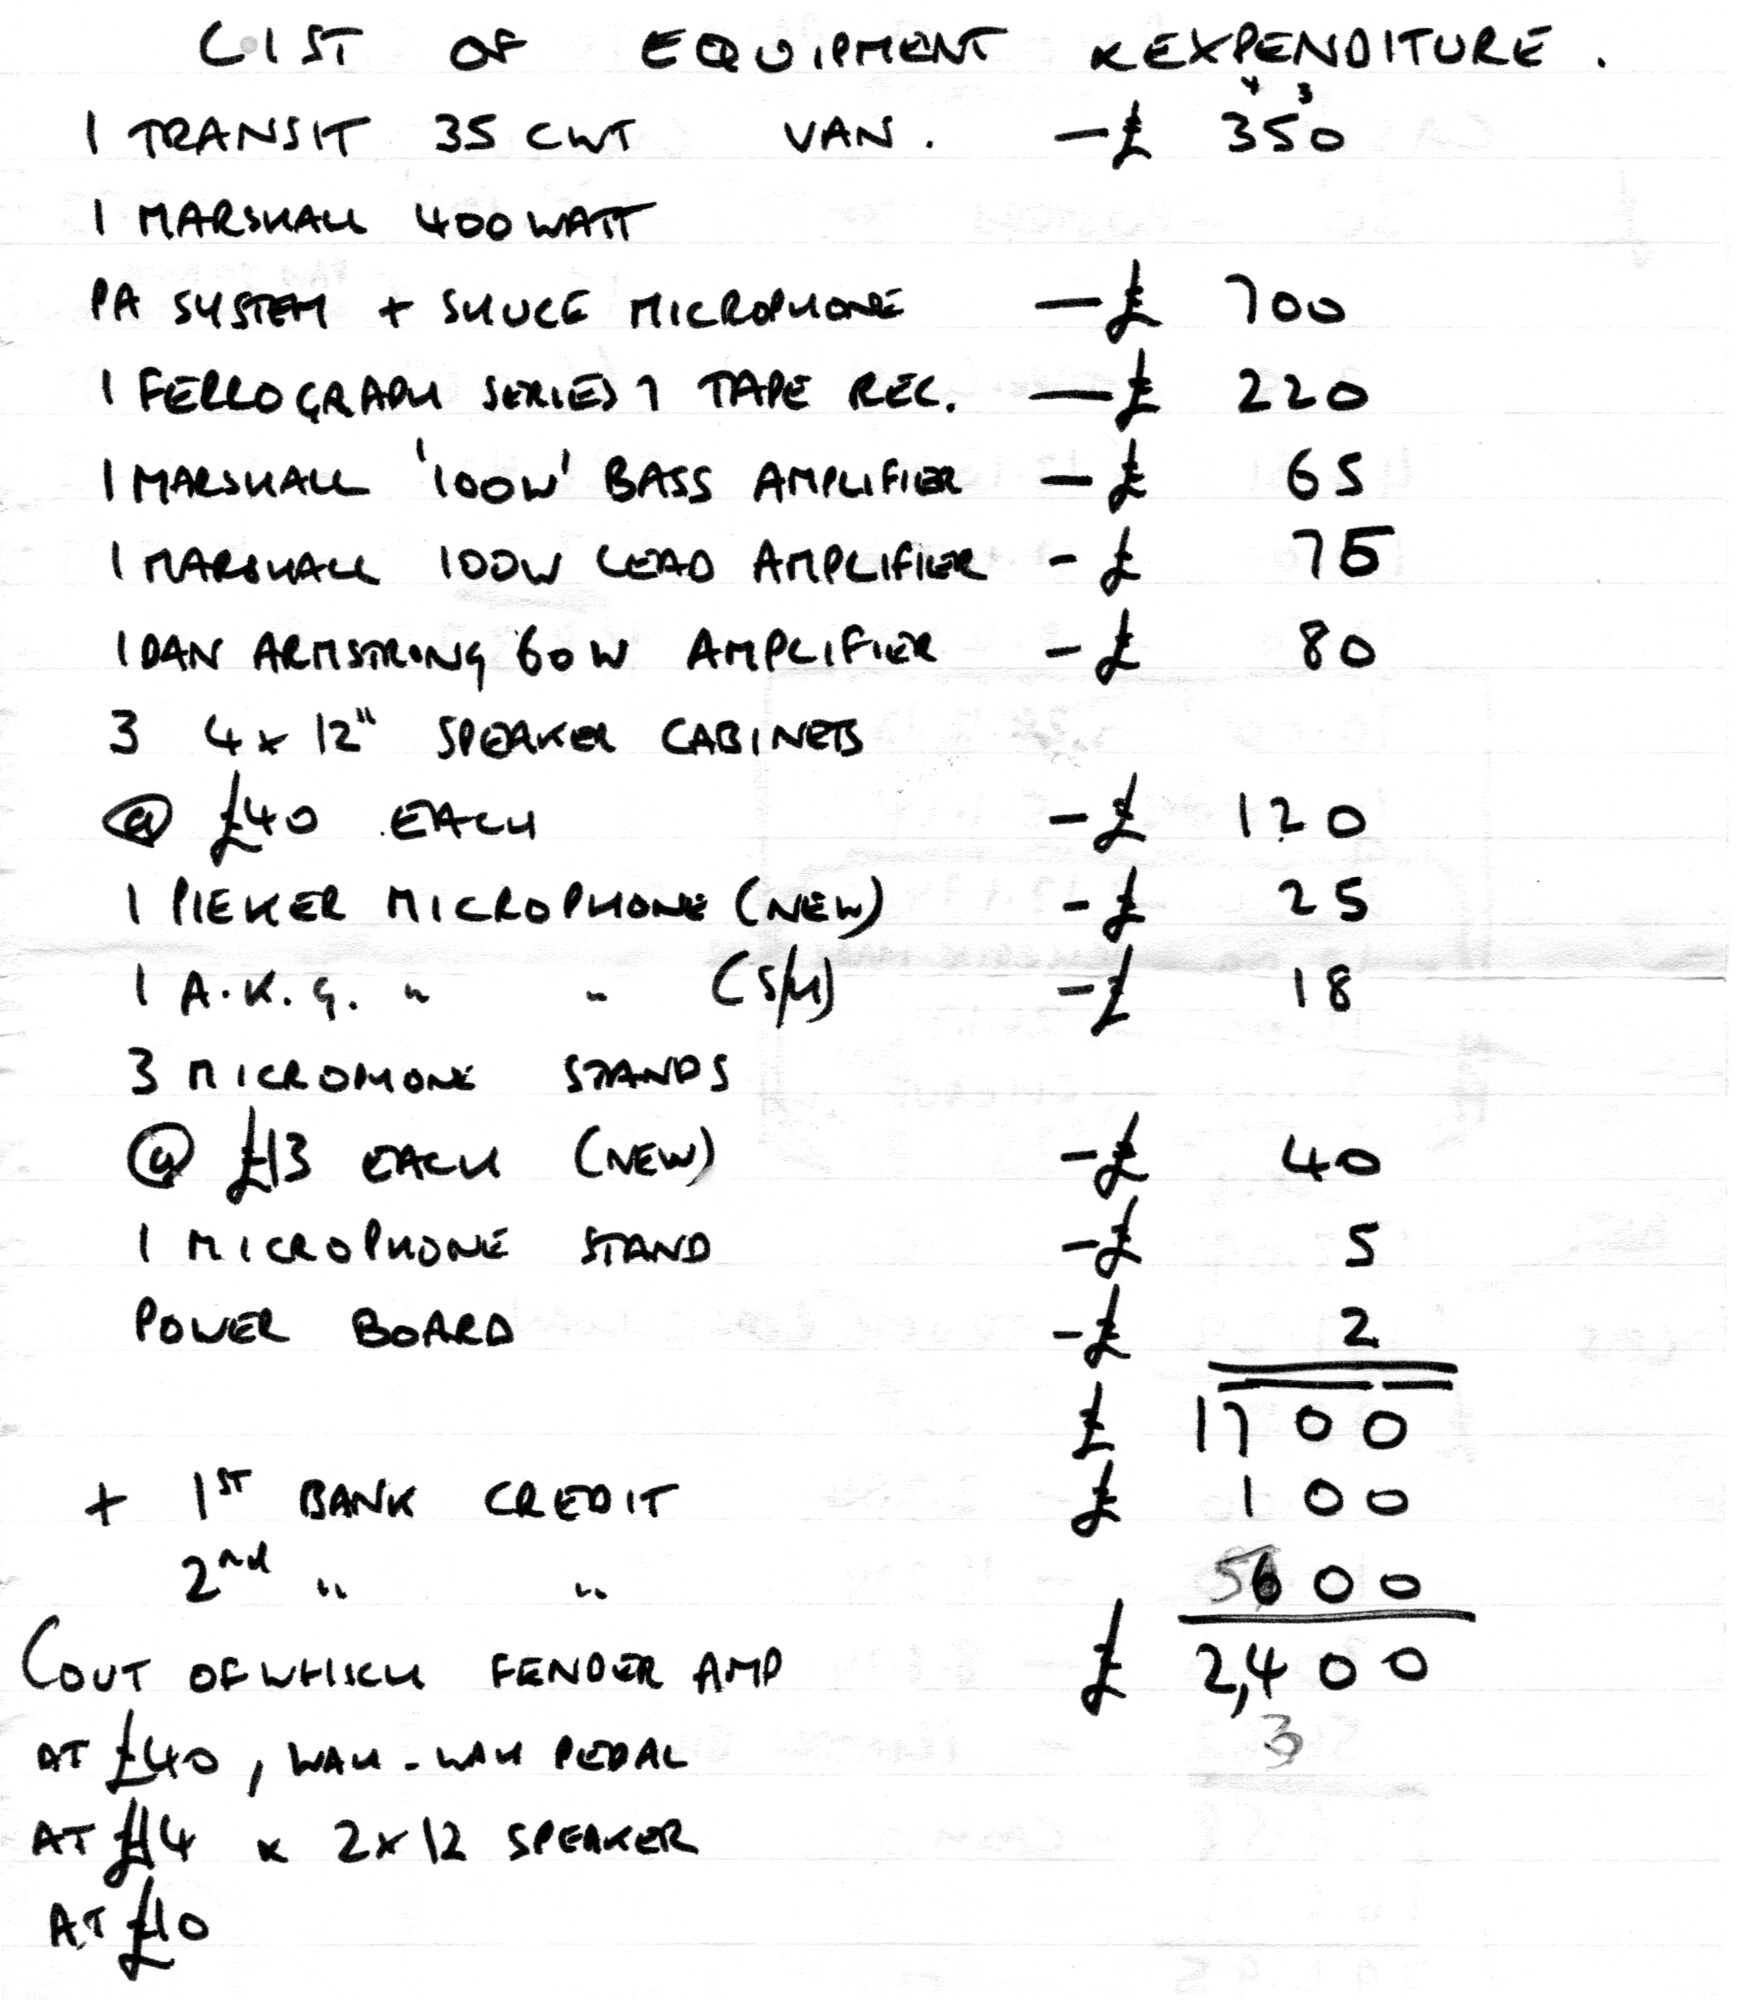 LIST OF EQUIPMENT & EXPENDITURE.
4 3
1 TRANSIT 35 CWT VAN. - £ 350
1 MARSHALL 400 WATT
PA SYSTEM + SHURE MICROPHONE - £ 700
1 FERROGRAPH SERIES 7 TAPE REC. - £ 220
1 MARSHALL '100W' BASS AMPLIFIER - £ 65
1 MARSHALL 100W LEAD AMPLIFIER - £ 75
1 DAN ARMSTRONG 60W AMPLIFIER - £ 80
3 4 x 12" SPEAKER CABINETS
@ £40 EACH - £ 120
1 PIEKER MICROPHONE (NEW) - £ 25
1 A.K.G. " " (S/H) - £ 18
3 MICROPHONE STANDS
@ £13 EACH (NEW) - £ 40
1 MICROPHONE STAND - £ 5
POWER BOARD - £ 2
£ 1700
+ 1ST BANK CREDIT £ 100
2nd " " 600
(OUT OF WHICH FENDER AMP £ 2,400
3
AT £40, WAH-WAH PEDAL
AT £14 & 2 x 12 SPEAKER
AT £10